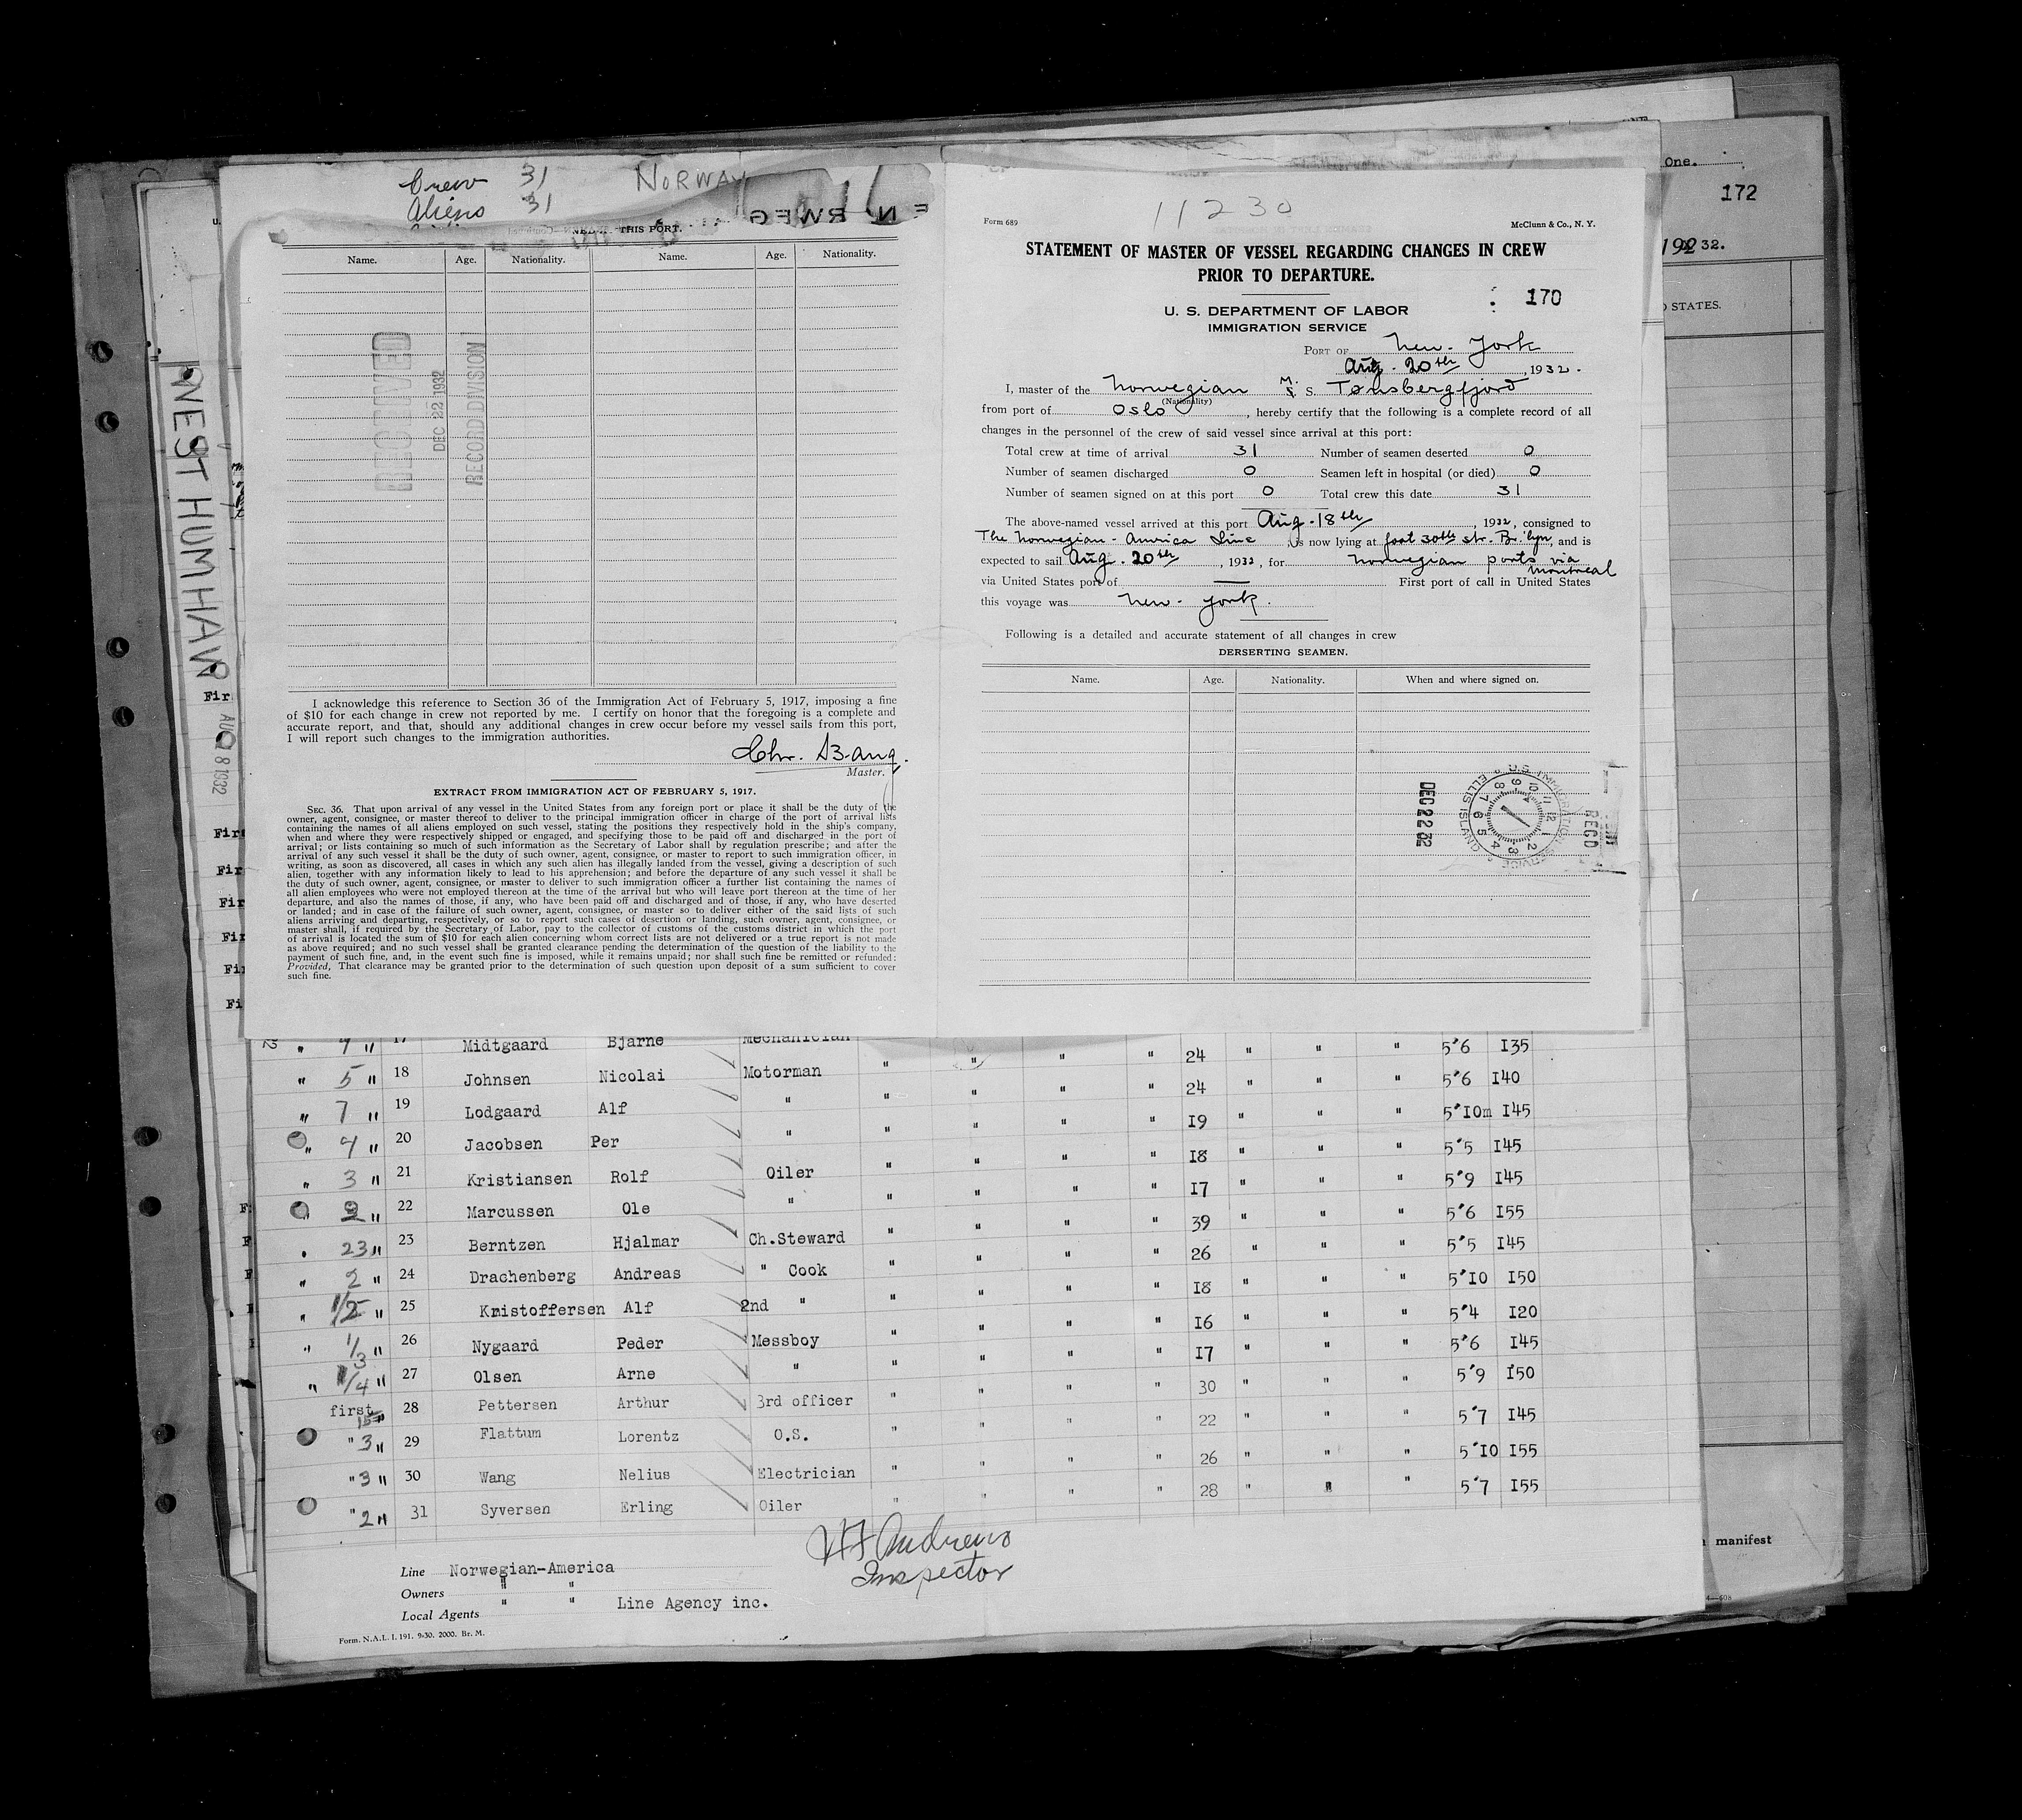 Crew 31 NORWAY
Aliens 31
THIS PORT.
Name. Age. Nationality. Name. Age. Nationality.
RECEIVED
DEC 22 1932
RECORD DIVISION
I acknowledge this reference to Section 36 of the Immigration Act of February 5, 1917, imposing a fine
of $10 for each change in crew not reported by me. I certify on honor that the foregoing is a complete and
accurate report, and that, should any additional changes in crew occur before my vessel sails from this port,
I will report such changes to the immigration authorities.
Chr. Bang.
Master.
EXTRACT FROM IMMIGRATION ACT OF FEBRUARY 5, 1917.
SEC. 36. That upon arrival of any vessel in the United States from any foreign port or place it shall be the duty of the
owner, agent, consignee, or master thereof to deliver to the principal immigration officer in charge of the port of arrival lists
containing the names of all aliens employed on such vessel, stating the positions they respectively hold in the ship's company,
when and where they were respectively shipped or engaged, and specifying those to be paid off and discharged in the port of
arrival; or lists containing so much of such information as the Secretary of Labor shall by regulation prescribe; and after the
arrival of any such vessel it shall be the duty of such owner, agent, consignee, or master to report to such immigration officer, in
writing, as soon as discovered, all cases in which any such alien has illegally landed from the vessel, giving a description of such
alien, together with any information likely to lead to his apprehension; and before the departure of any such vessel it shall be
the duty of such owner, agent, consignee, or master to deliver to such immigration officer a further list containing the names of
all alien employees who were not employed thereon at the time of the arrival but who will leave port thereon at the time of her
departure, and also the names of those, if any, who have been paid off and discharged and of those, if any, who have deserted
or landed; and in case of the failure of such owner, agent, consignee, or master so to deliver either of the said lists of such
aliens arriving and departing, respectively, or so to report such cases of desertion or landing, such owner, agent, consignee, or
master shall, if required by the Secretary of Labor, pay to the collector of customs of the customs district in which the port
of arrival is located the sum of $10 for each alien concerning whom correct lists are not delivered or a true report is not made
as above required; and no such vessel shall be granted clearance pending the determination of the question of the liability to the
payment of such fine, and, in the event such fine is imposed, while it remains unpaid; nor shall such fine be remitted or refunded:
Provided, That clearance may be granted prior to the determination of such question upon deposit of a sum sufficient to cover
such fine.
11230
Form 689 McClunn & Co., N. Y.
STATEMENT OF MASTER OF VESSEL REGARDING CHANGES IN CREW
PRIOR TO DEPARTURE.
170
U. S. DEPARTMENT OF LABOR
IMMIGRATION SERVICE
PORT OF New-York
Aug. 20th, 1932.
I, master of the Norwegian M. S. Tønsbergfjord
(Nationality)
from port of Oslo, hereby certify that the following is a complete record of all
changes in the personnel of the crew of said vessel since arrival at this port:
Total crew at time of arrival 31 Number of seamen deserted 0
Number of seamen discharged 0 Seamen left in hospital (or died) 0
Number of seamen signed on at this port 0 Total crew this date 31
The above-named vessel arrived at this port Aug-18th, 1932, consigned to
The Norwegian-America Line is now lying at foot 30th str. Br.'lyn, and is
expected to sail Aug. 20th, 1932, for Norwegian ports via
Montreal
via United States port of First port of call in United States
this voyage was New-York.
Following is a detailed and accurate statement of all changes in crew
DERSERTING SEAMEN.
Name. Age. Nationality. When and where signed on.
DEC 22 32
U.S. IMMIGRATION SERVICE ELLIS ISLAND
REC'D
One.
172
1932.
STATES.
manifest
WEST HUMHAW
AUG 18 1932
" 4 " 17 Midtgaard Bjarne Mechanician " " " " 24 " " " 5'6 I35
" 5 " 18 Johnsen Nicolai Motorman " " " " 24 " " " 5'6 I40
" 7 " 19 Lodgaard Alf " " " " " I9 " " " 5'I0m I45
" 4 " 20 Jacobsen Per " " " " " I8 " " " 5'5 I45
" 3 " 21 Kristiansen Rolf Oiler " " " " I7 " " " 5'9 I45
" " 22 Marcussen Ole " " " " " 39 " " " 5'6 I55
" 23 " 23 Berntzen Hjalmar Ch.Steward " " " " 26 " " " 5'5 I45
" 2 " 24 Drachenberg Andreas " Cook " " " " I8 " " " 5'I0 I50
" 1/2 " 25 Kristoffersen Alf 2nd " " " " " I6 " " " 5'4 I20
" 1/3 " 26 Nygaard Peder Messboy " " " " I7 " " " 5'6 I45
" 1/4 " 27 Olsen Arne " " " " " 30 " " " 5'9 I50
first 15" 28 Pettersen Arthur 3rd officer " " " " 22 " " " 5'7 I45
" 3 " 29 Flattum Lorentz O.S. " " " " 26 " " " 5'I0 I55
" 3 " 30 Wang Nelius Electrician " " " " 28 " " " 5'7 I55
" 2 " 31 Syversen Erling Oiler " "
Line Norwegian-America
Owners " "
Local Agents " " Line Agency inc.
Form. N.A.L. I. 191. 9-30. 2000. Br. M.
Andrews
Inspector